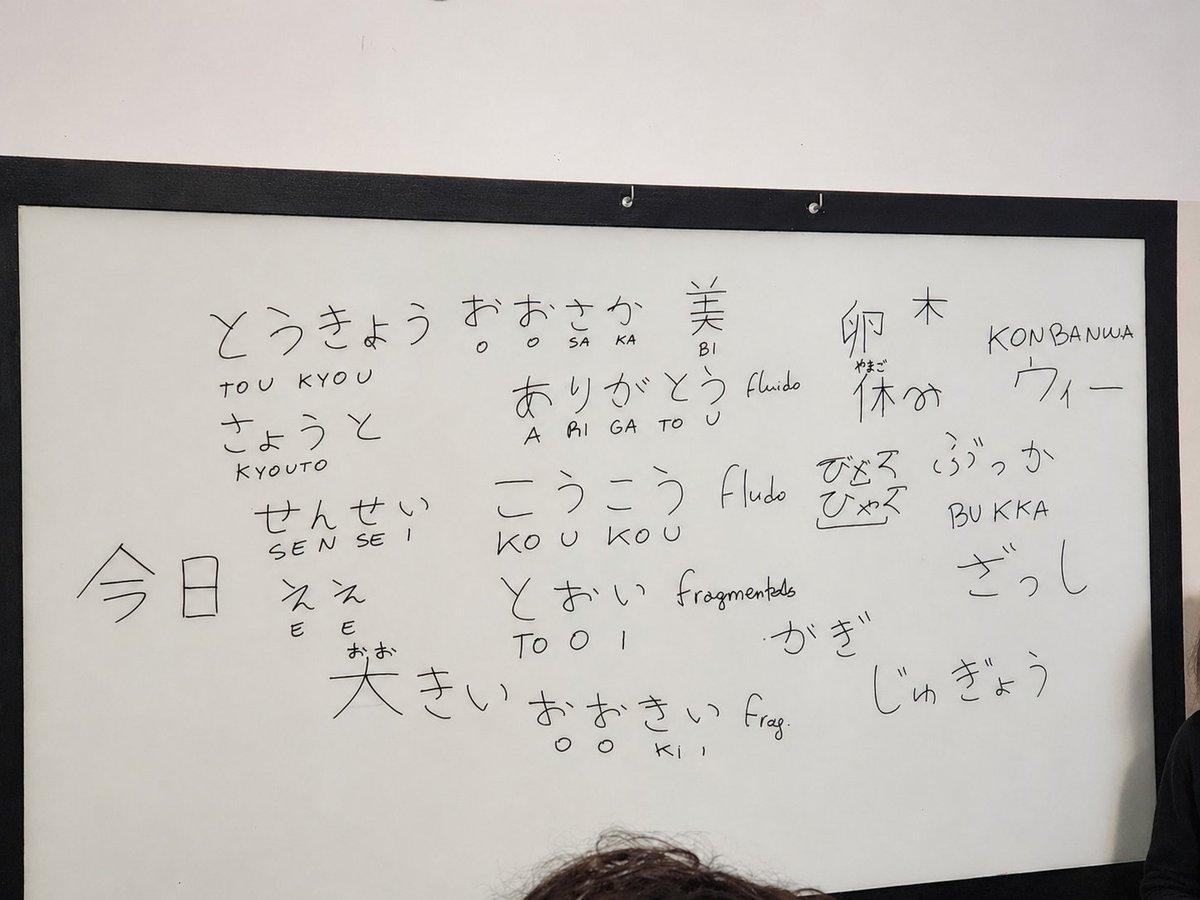 とうきょう
TOU KYOU
さょうと
KYOUTO
せんせい
SEN SE I
今日
ええ
E E
おお
大きい
おおさか
O O SA KA
美
BI
ありがとう fluido
A RI GA TO U
こうこう fludo
KO U KO U
とおい
TO O I
おおきい frag.
O O Ki i
卵
やまご
木
休み
KONBANWA
ウィー
ぶっか
BUKKA
ざっし
がぎ
じゅぎょう